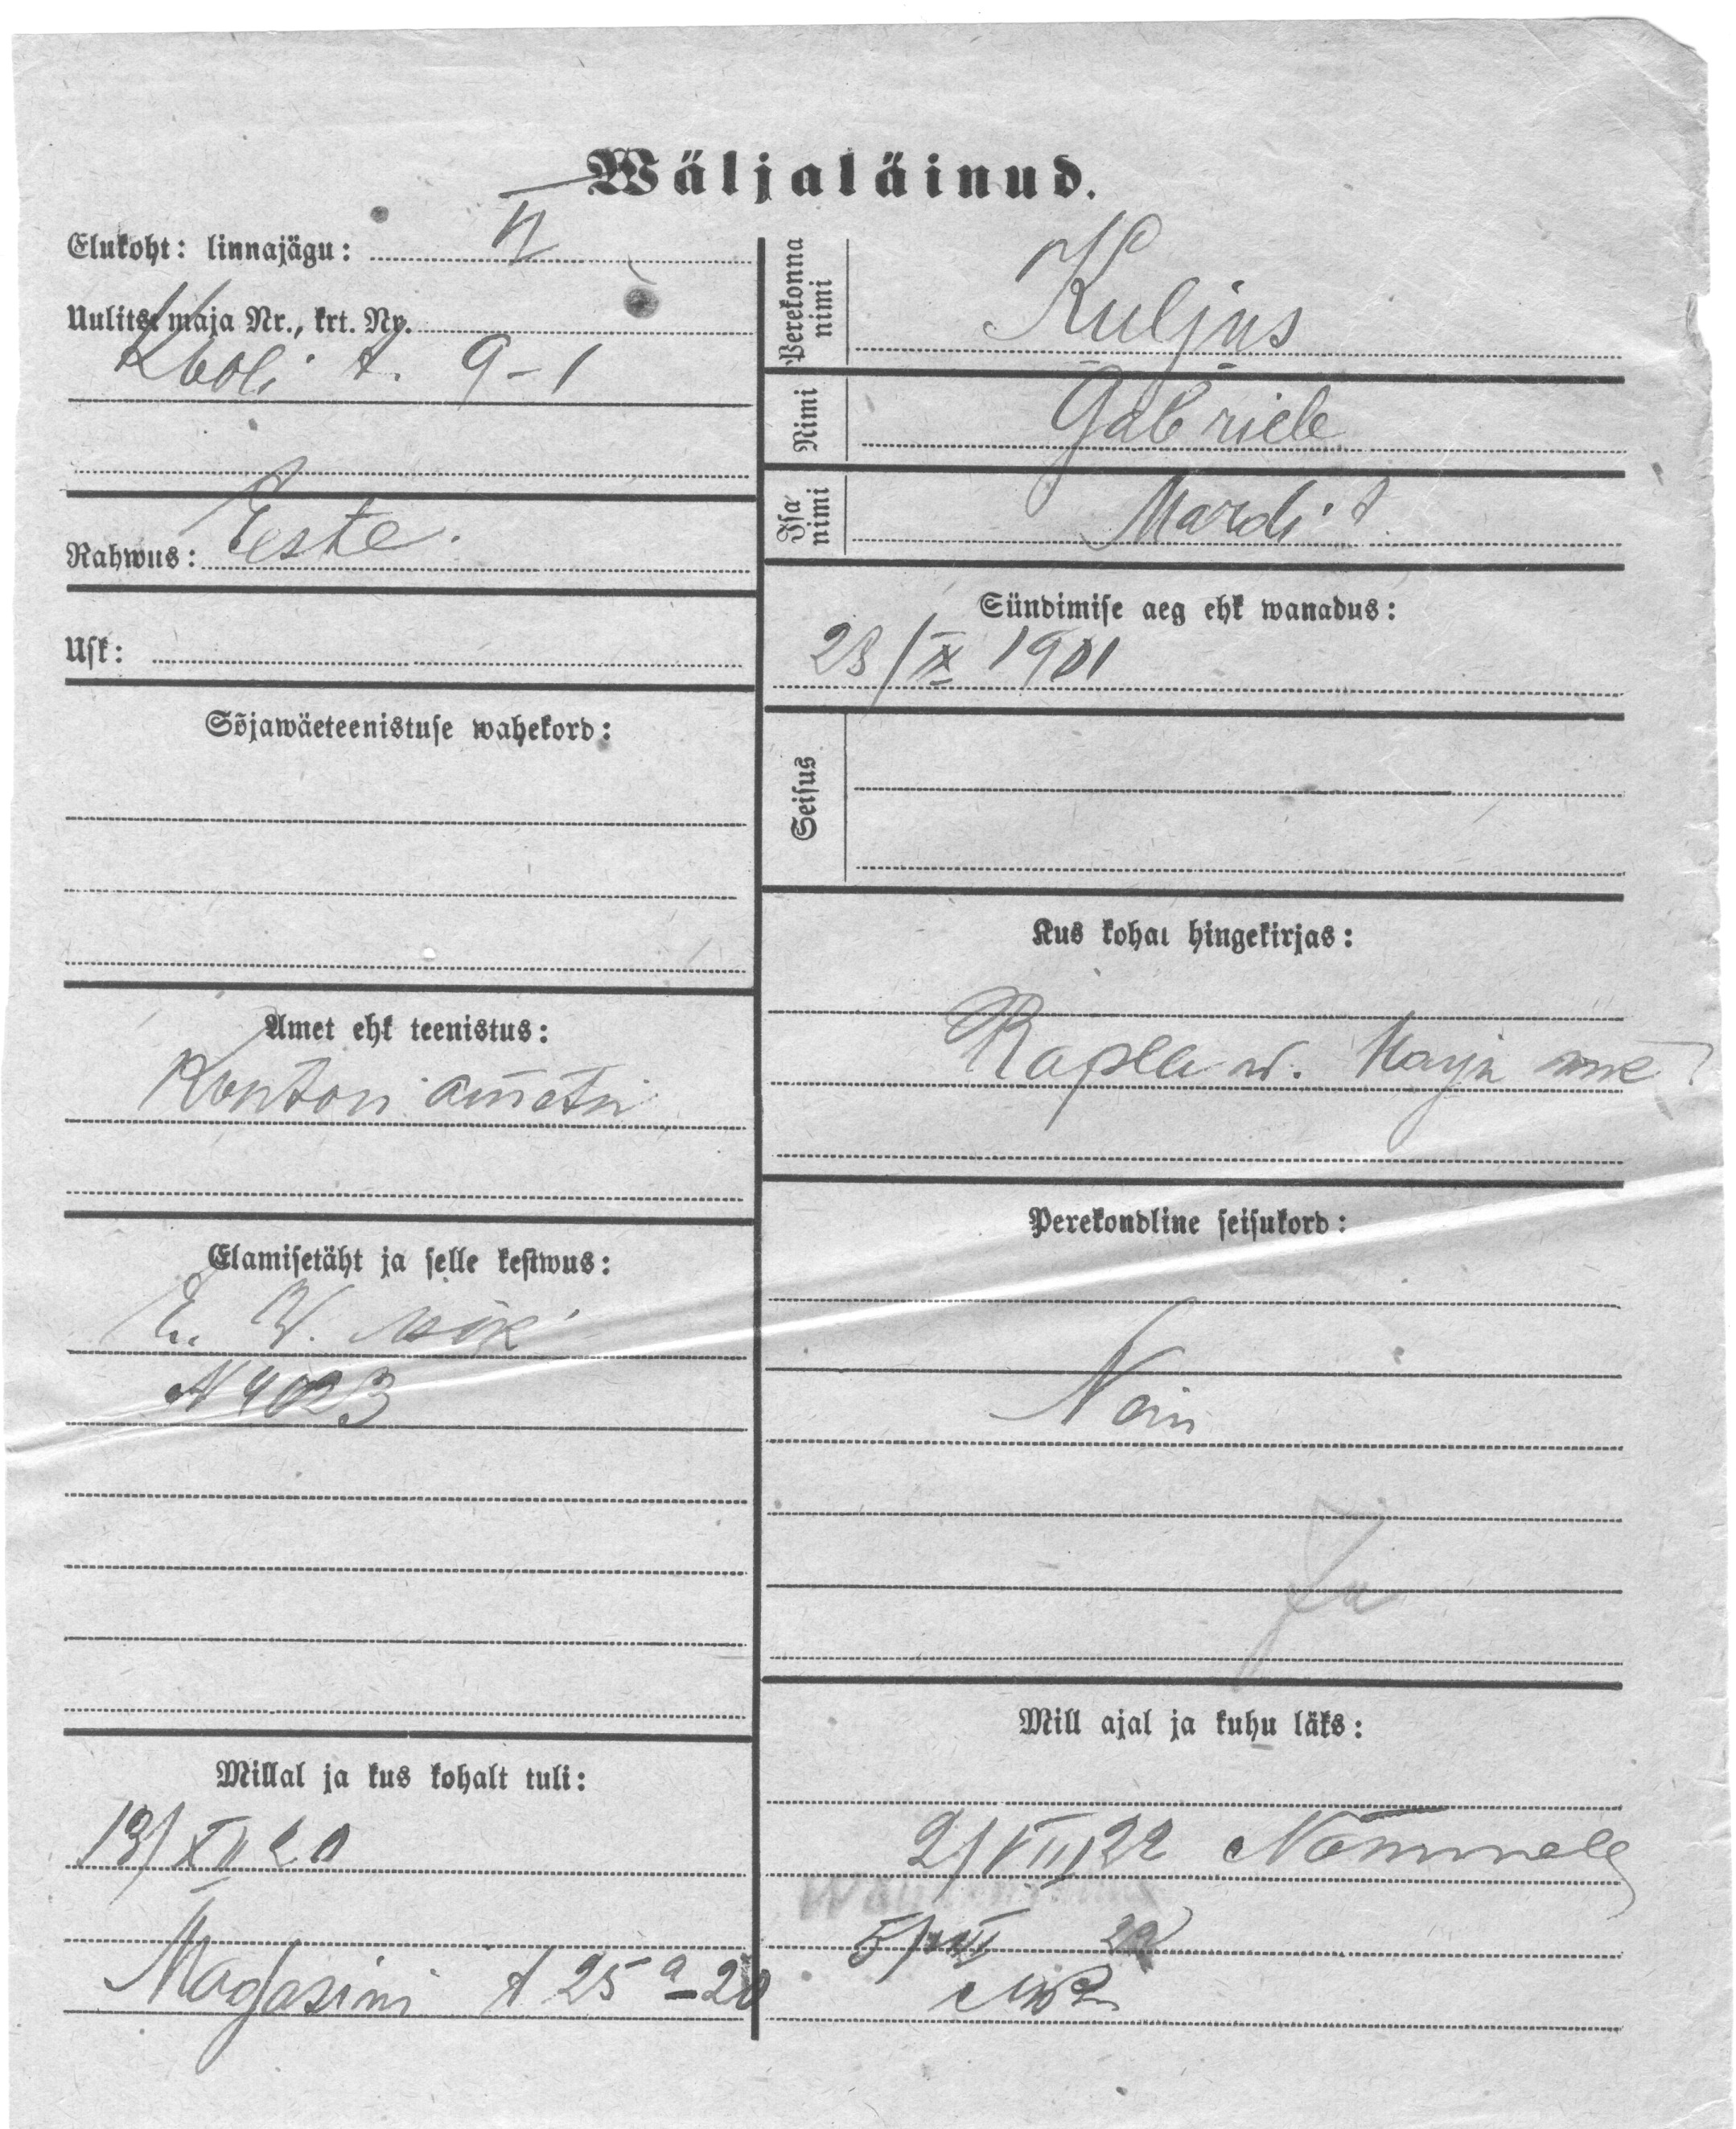 Wäljaläinud.
Elukoht: linnajägu:
Uulits, maja Nr., krt. Nr.
Kooli t. 9-1
Rahwus: Este.
Usk:
Sõjawäeteenistuse wahekord:
Amet ehk teenistus:
Kontori ametn
Elamisetäht ja selle kestwus:
E. W.
N 4023
Millal ja kus kohalt tuli:
13/XII 20
Magasini t 25 a-20
Perekonna nimi
Kuljus
Nimi
Gabriele
Isa nimi
Mardi t.
Sündimise aeg ehk wanadus:
28/IX 1901
Seisus
Kus kohal hingekirjas:
Rapla w. Harju
Perekondline seisukord:
Mill ajal ja kuhu läks:
2/VIII 22 Nõmmele
22